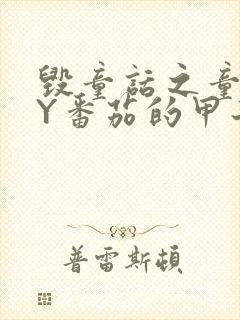 毁童话之童
Y番茄的甲
普雷斯顿